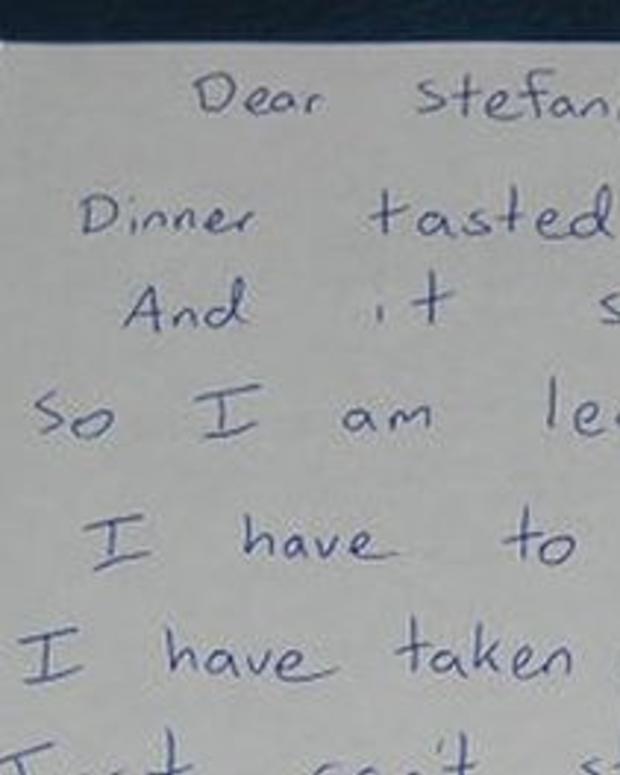 Dear Stefan,
Dinner tasted
And it
So I am
I have to
I have taken